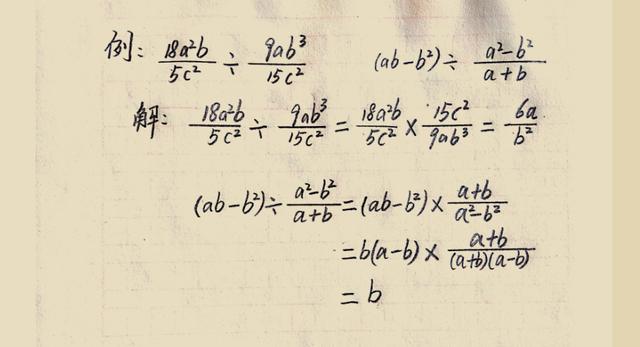 例: 18a²b/5c² ÷ 9ab³/15c² (ab-b²)÷ a²-b²/a+b
解: 18a²b/5c² ÷ 9ab³/15c² = 18a²b/5c² × 15c²/9ab³ = 6a/b²
(ab-b²)÷ a²-b²/a+b =(ab-b²)× a+b/a²-b²
=b(a-b)× a+b/(a+b)(a-b)
= b